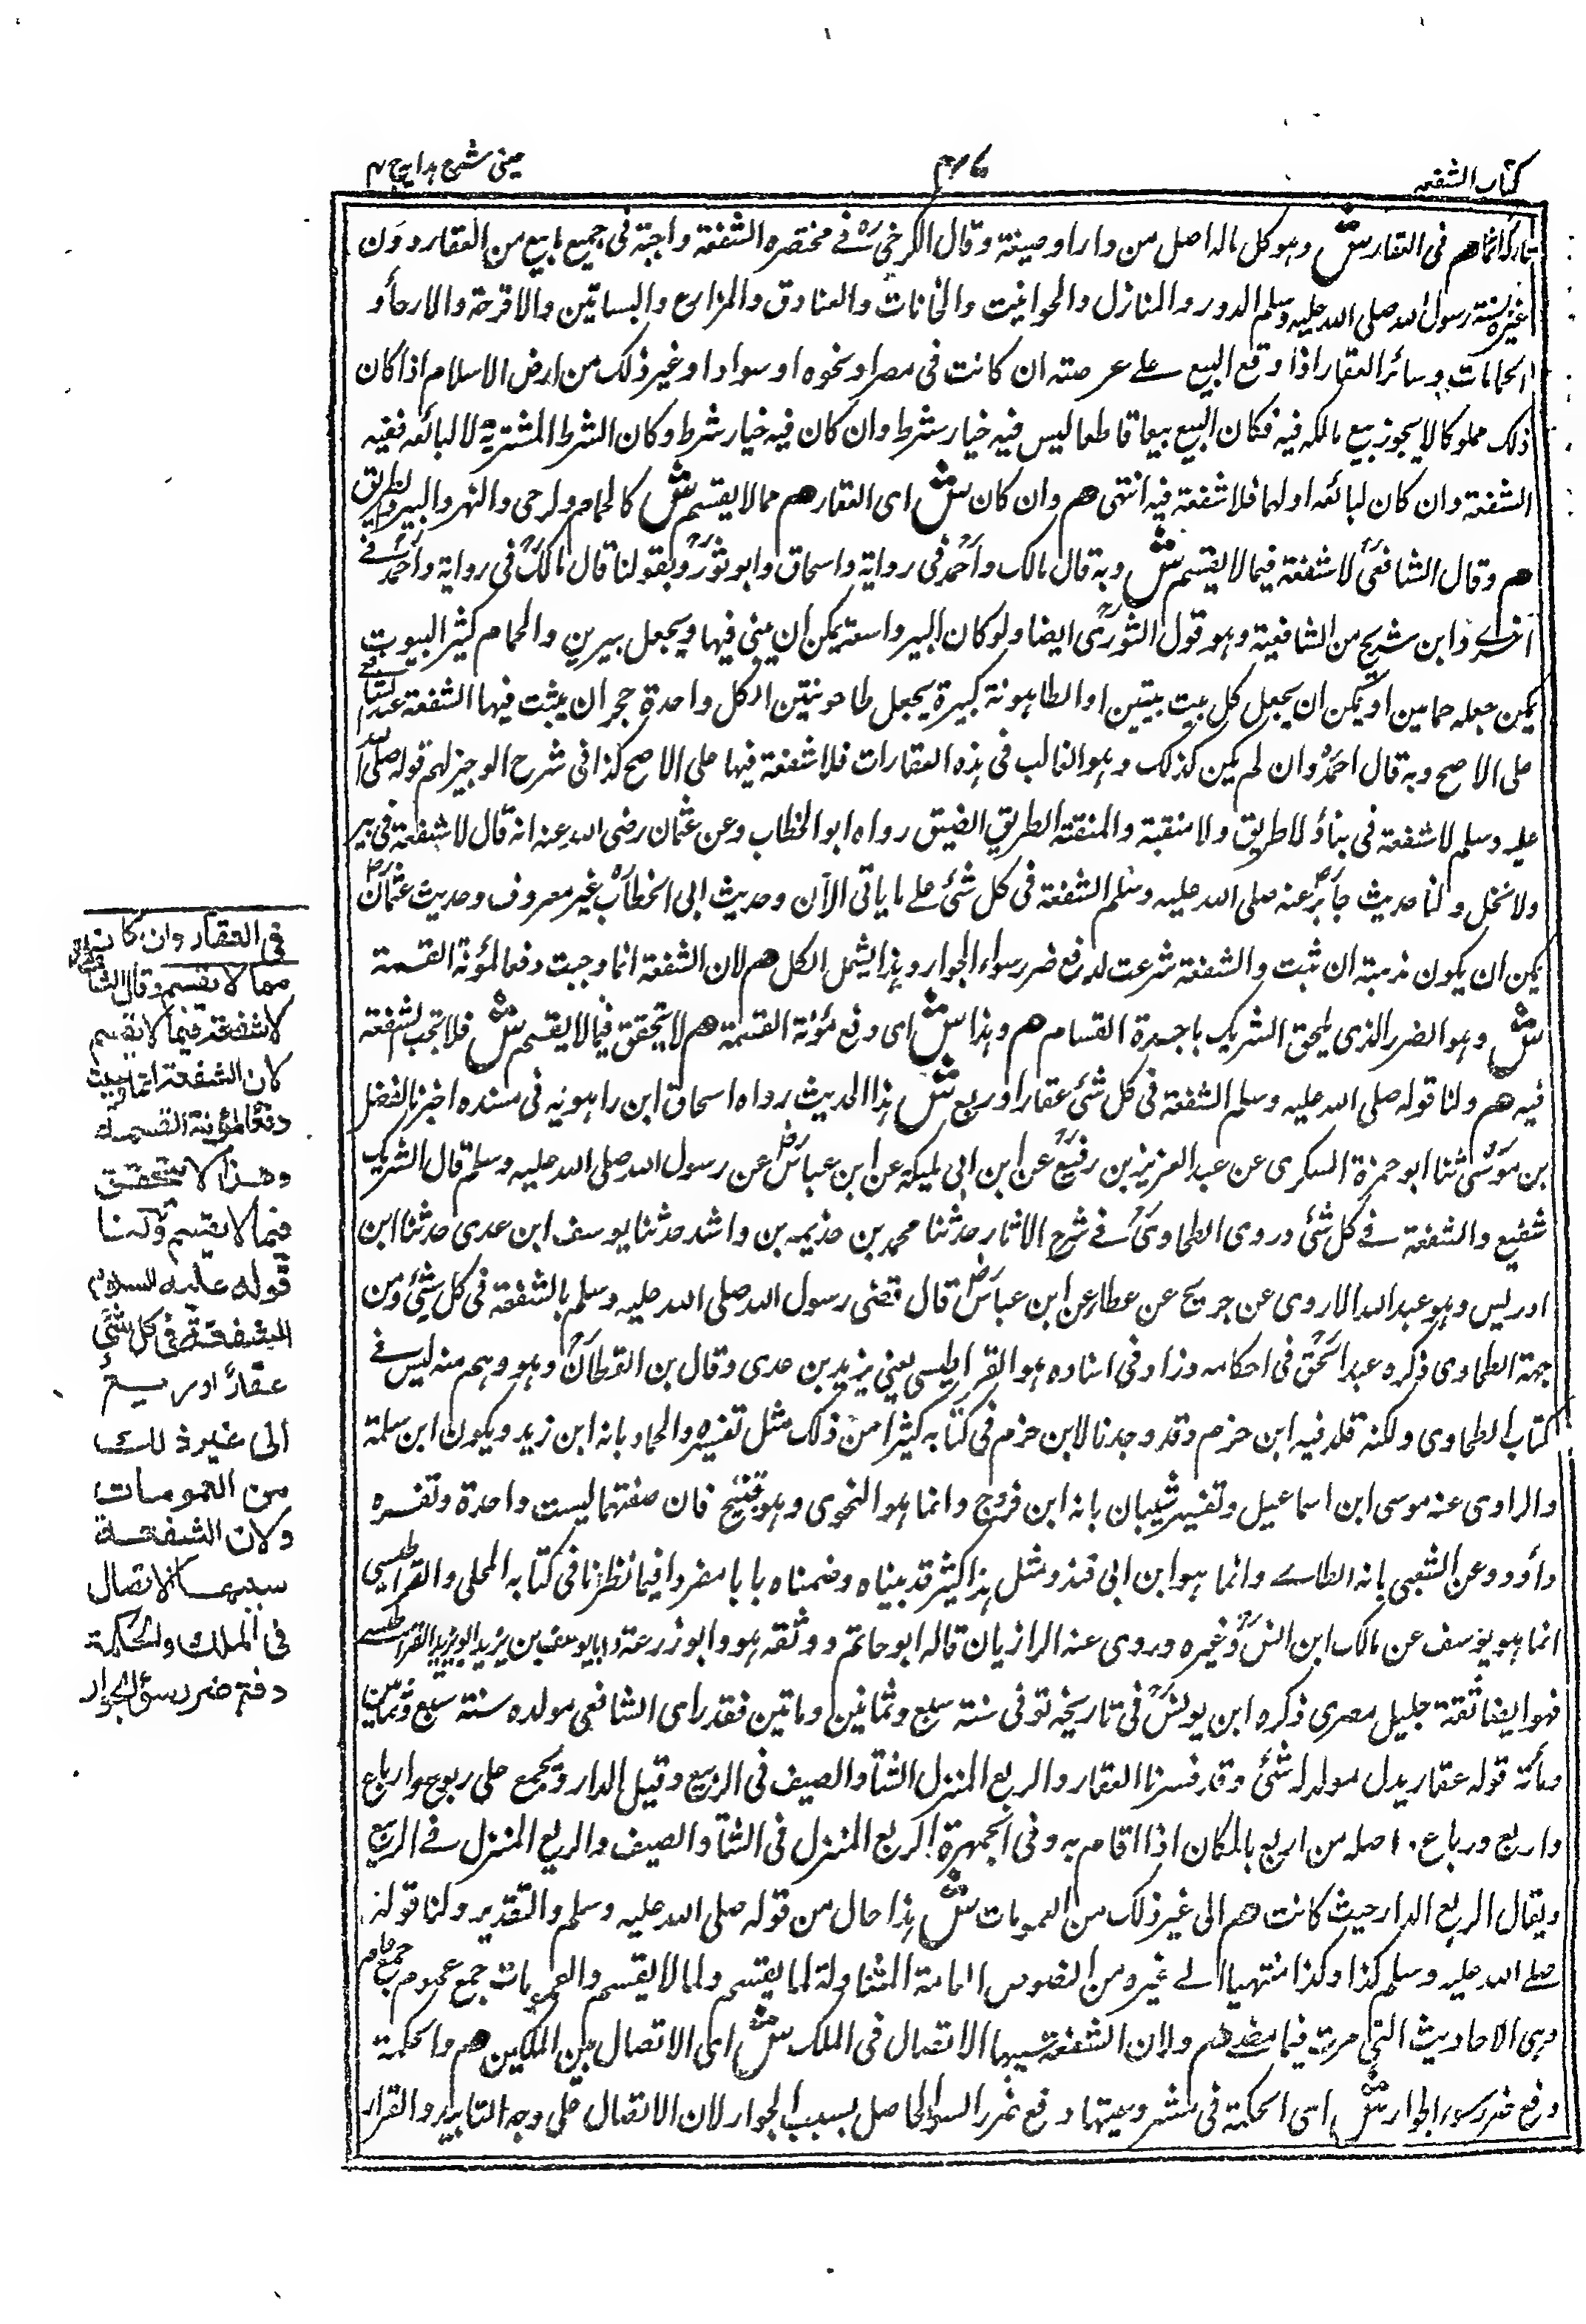 كتاب الشفعة
عينى شرح هدايه ج ٣
هم فى العقار ش وهو كل ماله اصل من دار او ضيعة وقال الكرخىؒ فى مختصره الشفعة واجبة فى جميع ما بيع من العقار دون
غيره بسنة رسول الله صلى الله عليه وسلم الدور والمنازل والحوانيت والخانات والفنادق والمزارع والبساتين والاقرحة والارحاء و
الحمامات وسائر العقار اذا وقع البيع على عرصته ان كانت فى مصر او نحوه او سواد او غير ذلك من ارض الاسلام اذا كان
ذلك مملوكا لا يجوز بيع مالكه فيه فكان البيع بيعا قاطعا ليس فيه خيار شرط وان كان فيه خيار شرط وكان الشرط للمشترى لا لبائعه ففيه
الشفعة وان كان لبائعه او لهما فلا شفعة فيه انتهى هم وان كان ش اى العقار هم مما لا يقسم ش كالحمام والرحى والنهر والبير والطريق
هم وقال الشافعىؒ لا شفعة فيما لا يقسم ش وبه قال مالك واحمدؒ فى رواية واسحاق وابو ثورؒ وبقولنا قال مالكؒ فى رواية واحمدؒ فى
اخرى وابن شريح من الشافعية وهو قول الثورىؒ ايضا ولو كان البير واسعة يمكن ان يبنى فيها ويجعل بيرين والحمام كثير البيوت
يمكن جعله حمامين او يمكن ان يجعل كل بيت بيتين او الطاحونة كبيرة يجعل طاحونتين لكل واحدة حجر ان يثبت فيها الشفعة عند الشافعى
على الاصح وبه قال احمدؒ وان لم يكن كذلك وهو الغالب فى هذه العقارات فلا شفعة فيها على الاصح كذا فى شرح الوجيز لهم قوله صلى الله
عليه وسلم لا شفعة فى بناء ولا طريق ولا منقبة والمنقبة الطريق الضيق رواه ابو الخطاب وعن عثمان رضى الله عنه انه قال لا شفعة فى بير
ولا نخل ولنا حديث جابرؓ عنه صلى الله عليه وسلم الشفعة فى كل شئ على ما ياتى الآن وحديث ابى الخطابؒ غير معروف وحديث عثمانؓ
يمكن ان يكون مذهبه ان ثبت والشفعة شرعت لدفع ضرر سواء الجوار وهذا يشمل الكل هم لان الشفعة انما وجبت دفعا لمؤنة القسمة
ش وهو الضرر الذى يلحق الشريك باجرة القسام هم وهذا ش اى دفع مؤنة القسمة هم لا يتحقق فيما لا يقسم ش فلا تجب الشفعة
فيه هم ولنا قوله صلى الله عليه وسلم الشفعة فى كل شئ عقار او ربع ش هذا الحديث رواه اسحاق ابن راهويه فى مسنده اخبرنا الفضل
بن موسى ثنا ابو حمزة السكرى عن عبد العزيز بن رفيعؒ عن ابن ابى مليكة عن ابن عباسؓ عن رسول الله صلى الله عليه وسلم قال الشريك
شفيع والشفعة فى كل شئ وروى الطحاوىؒ فى شرح الاثار حدثنا محمد بن خذيمه بن راشد حدثنا يوسف ابن عدى حدثنا ابن
ادريس وهو عبد الله الاودى عن جريج عن عطاء عن ابن عباسؓ قال قضى رسول الله صلى الله عليه وسلم بالشفعة فى كل شئ ومن
جهة الطحاوى ذكره عبد الحقؒ فى احكامه وزاد فى اسناده هو القراطيسى يعنى يزيد بن عدى وقال بن القطانؒ وهو وهم منه ليس فى
كتاب الطحاوى ولكنه قلد فيه ابن حزم وقد وجدنا لابن حزم فى كتابه كثيرا من ذلك مثل تفسيره والحماد بانه ابن زيد ويكون ابن سلمة
والراوى عنه موسى ابن اسماعيل وتفسير شيبان بانه ابن فروج وانما هو النحوى وهو قبيح فان صفتهما ليست واحدة وتفسره
داؤد وعن الشعبى بانه الطائى وانما هو ابن ابى هند ومثل هذا كثير قد بيناه وضمناه بابا مفردا فيما نظرنا فى كتابه المحلى والقراطيسى
انما هو يوسف عن مالك ابن انسؒ وغيره وروى عنه الرازيان قاله ابو حاتم ووثقه هو وابو زرعة وابا يوسف بن يزيد ابو يزيد القراطيسى
فهو ايضا ثقة جليل مصرى ذكره ابن يونسؒ فى تاريخه توفى سنة سبع وثمانين وماتين فقد راى الشافعى مولده سنة سبع وثمانين
ومائة قوله عقار بدل من قوله شئ وقد فسرنا العقار والربع المنزل الشتاء والصيف فى الربيع وقيل الدار ويجمع على ربوع وارباع
واربع ورباع اصله من اربع بالمكان اذا اقام به وفى الجمهرة الربع المنزل فى الشتاء والصيف والربع المنزل فى الربيع
ويقال الربع الدار حيث كانت هم الى غير ذلك من العمومات ش هذا حال من قوله صلى الله عليه وسلم والتقدير ولنا قوله
صلى الله عليه وسلم كذا وكذا منتهيا الى غيره من النصوص العامة المتناولة لما يقسم ولما لا يقسم والعمومات جمع عموم جمع عام
وهى الاحاديث التى مرت فيما مضى هم ولان الشفعة سببها الاتصال فى الملك ش اى الاتصال بين الملكين هم والحكمة
دفع ضرر سوء الجوار ش اى الحكمة فى مشروعيتها دفع ضرر السوء الحاصل بسبب الجوار لان الاتصال على وجه التابيد والقرار
فى العقار وان كان
مما لا يقسم وقال الشافعى
لا شفعة فيما لا يقسم
لان الشفعة انما وجبت
دفعا لمؤنة القسمة
وهذا لا يتحقق
فيما لا يقسم ولنا
قوله عليه السلام
الشفعة فى كل شئ
عقار او ربع
الى غير ذلك
من العمومات
ولان الشفعة
سببها الاتصال
فى الملك والحكمة
دفع ضرر سوء الجوار